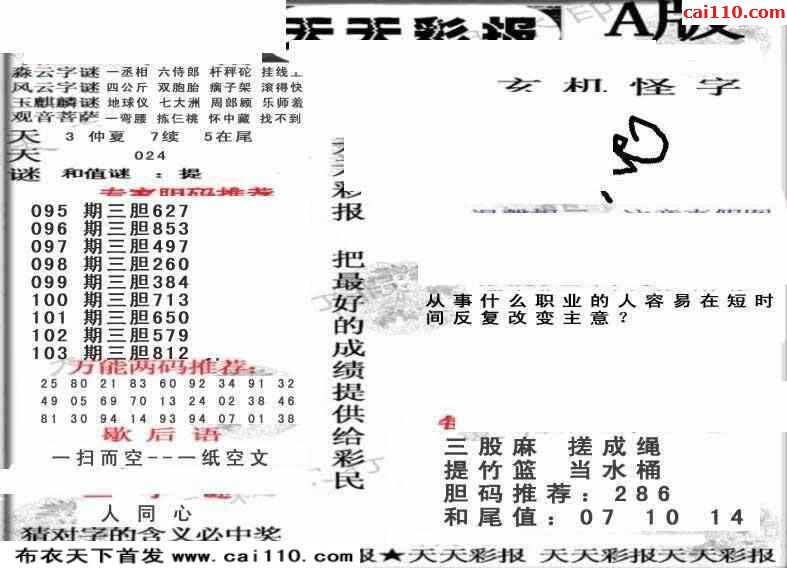 天天彩报 A版
cai110.com
森云字谜 一丞相 六侍郎 杆秤砣 挂线上
风云字谜 四公斤 双胞胎 疯子架 滚得快
玉麒麟谜 地球仪 七大洲 周郎顾 乐师羞
观音菩萨 一弯腰 拣仁桃 怀中藏 找不到
天 3 仲夏 7续 5在尾
天 024
谜 和值谜 : 提
专家胆码推荐
095 期三胆627
096 期三胆853
097 期三胆497
098 期三胆260
099 期三胆384
100 期三胆713
101 期三胆650
102 期三胆579
103 期三胆812 ..
万能两码推荐:
25 80 21 83 60 92 34 91 32
49 05 69 70 13 24 02 38 46
81 30 94 14 93 94 07 01 38
歇后语
一扫而空---一纸空文
人同心
猜对字的含义必中奖
彩报 把最好的成绩提供给彩民
玄机怪字
从事什么职业的人容易在短时
间反复改变主意？
三股麻 搓成绳
提竹篮 当水桶
胆码推荐: 286
和尾值: 07 10 14
布衣天下首发 www.cai110.com 报★天天彩报 天天彩报天天彩报